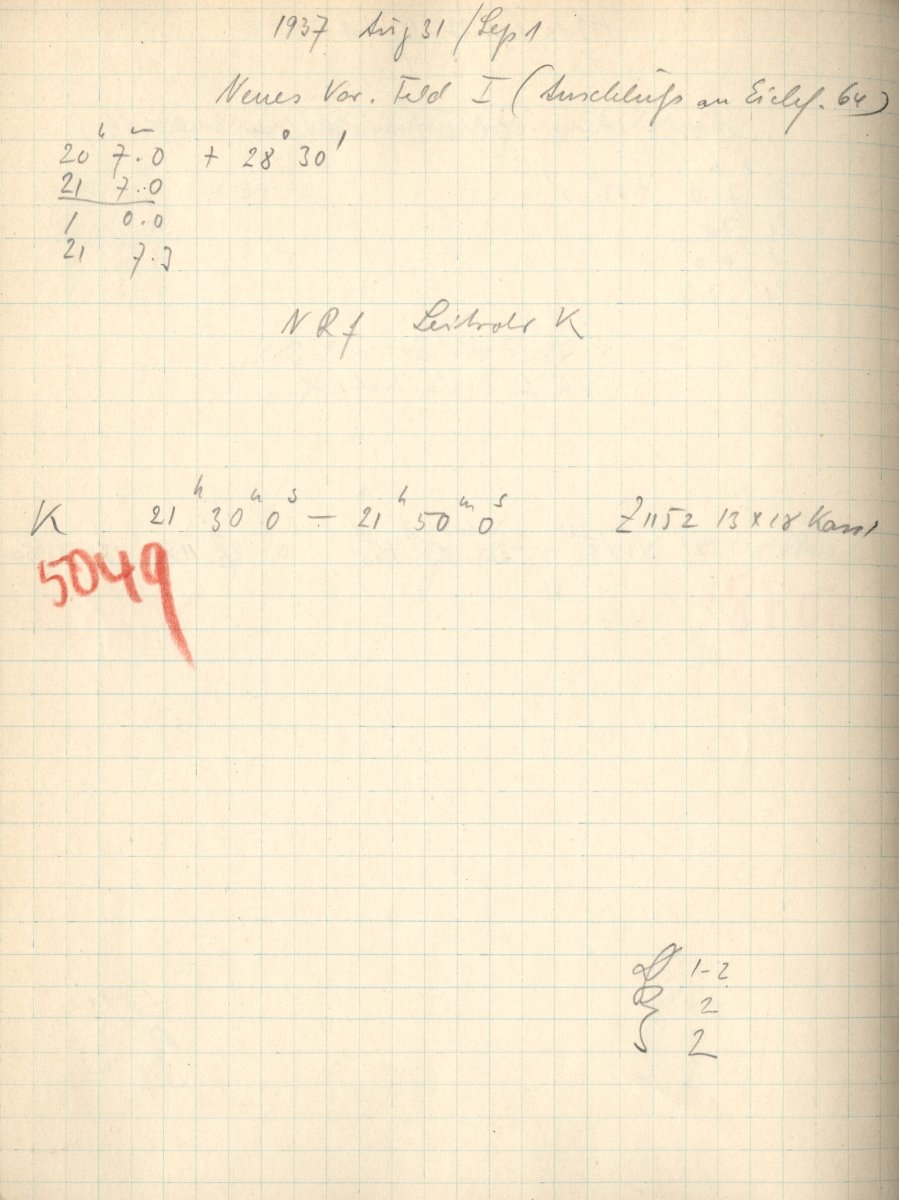 1937 Aug 31 / Sept 1
Neues Var. Feld I (Anschluß an Eichf. 64)
20h 7m.0 + 28° 30'
21 7.0
1 0.0
21 7.7
NRf Leitrohr K
K 21h 30m 0s — 21h 50m 0s Z 1152 13 x 18 Kass
5049
1-2
2
2